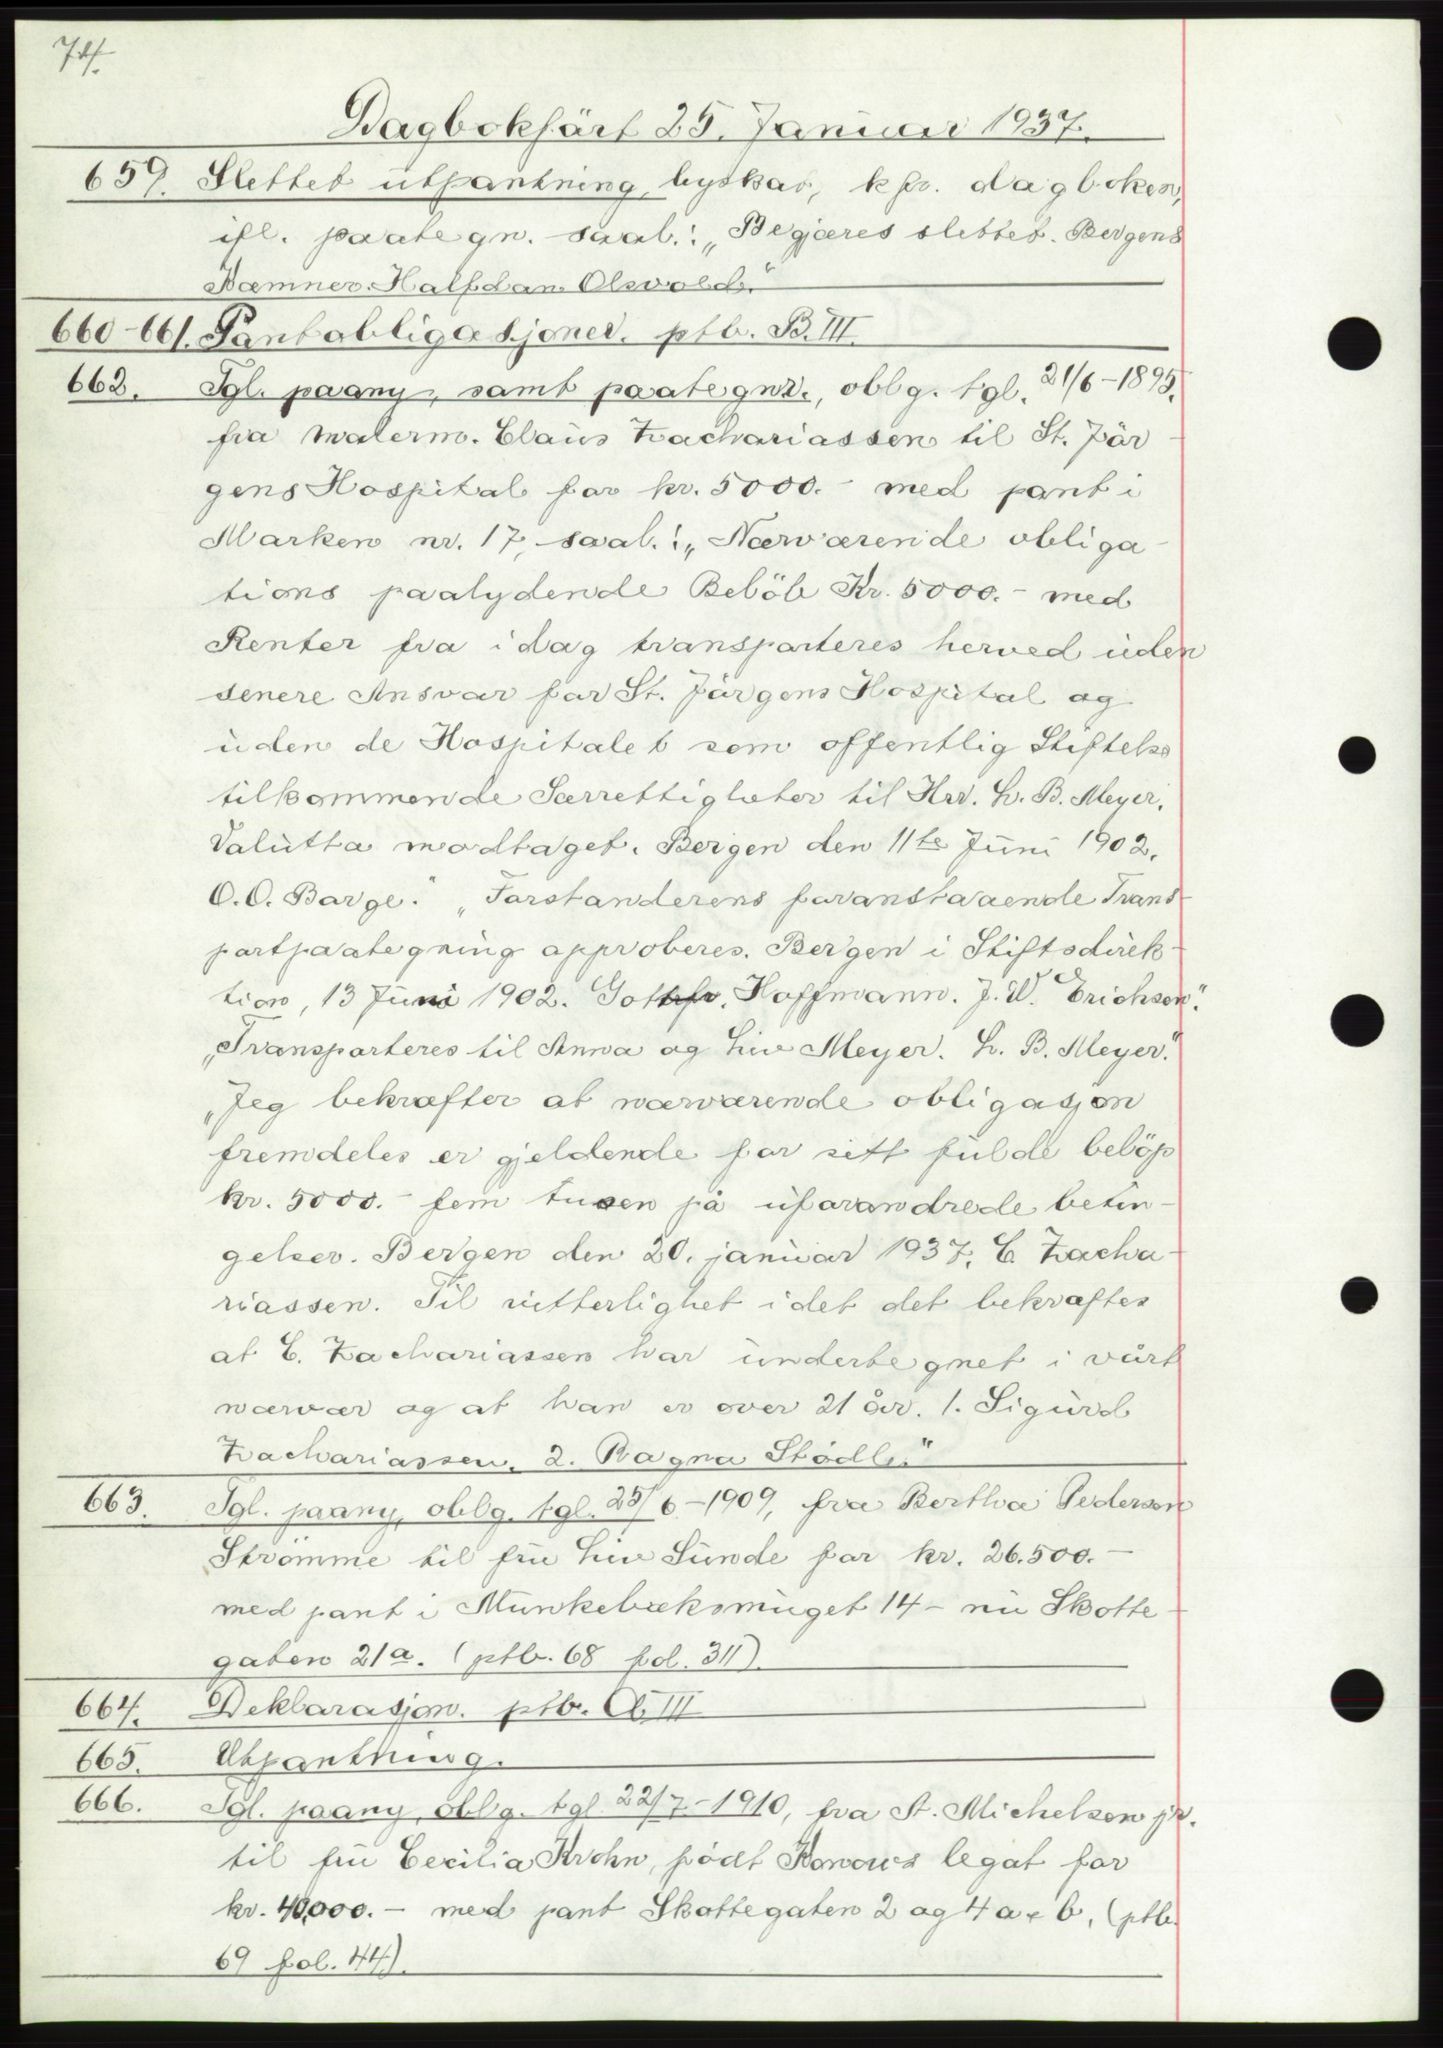 74.
Dagbokført 25. Januar 1937.
659. Slettet utpantning, byskat, kfr. dagboken,
ifl. paategn. saal.: „Begjæres slettet. Bergens
Kæmner. Halfdan Olsvold."
660-661. Pantobligasjoner. ptb. B. III.
662. Tgl. paany, samt paategnr., oblg. tgl. 21/6-1895,
fra malerm. Claus Zachariassen til St. Jör-
gens Hospital for kr. 5000.- med pant i
Marken nr. 17, saal.: „Nærværende obliga-
tions paalydende Belöb Kr. 5000.- med
Renter fra idag transporteres herved uden
senere Ansvar for St. Jörgens Hospital og
uden de Hospitalet som offentlig Stiftelse
tilkommende Særrettigheter til Hrr. L. B. Meyer.
Valutta modtaget. Bergen den 11te Juni 1902.
O. O. Barge." „Forstanderens foranstaaende Trans-
portpaategning approberes. Bergen i Stiftsdirek-
tion, 13 Juni 1902. Gottfr. Hoffmann. J. W. Erichsen".
„Transporteres til Anna og Liv Meyer. L. B. Meyer."
„Jeg bekræfter at nærværende obligasjon
fremdeles er gjeldende for sitt fulde belöp
kr. 5000.- fem tusen på uforandrede betin-
gelser. Bergen den 20. januar 1937. C. Zacha-
riassen. Til vitterlighet idet det bekræftes
at C. Zachariassen har undertegnet i vårt
nærvær og at han er over 21 år. 1. Sigurd
Zachariassen. 2. Ragna Stödle."
663. Tgl. paany, oblg. tgl. 25/6-1909, fra Bertha Pedersen
Strömme til fru Liv Sunde for kr. 26.500.-
med pant i Munkebæksmuget 14 - nu Skotte-
gaten 21a. (ptb. 68 fol. 311).
664. Deklarasjon. ptb. C. III
665. Utpantning.
666. Tgl. paany, oblg. tgl. 22/7-1910, fra A. Michelsen jr.
til fru Cecilia Krohn, född Konows legat for
kr. 40,000.- med pant Skottegaten 2 og 4 a & b, (ptb.
69 fol. 44).